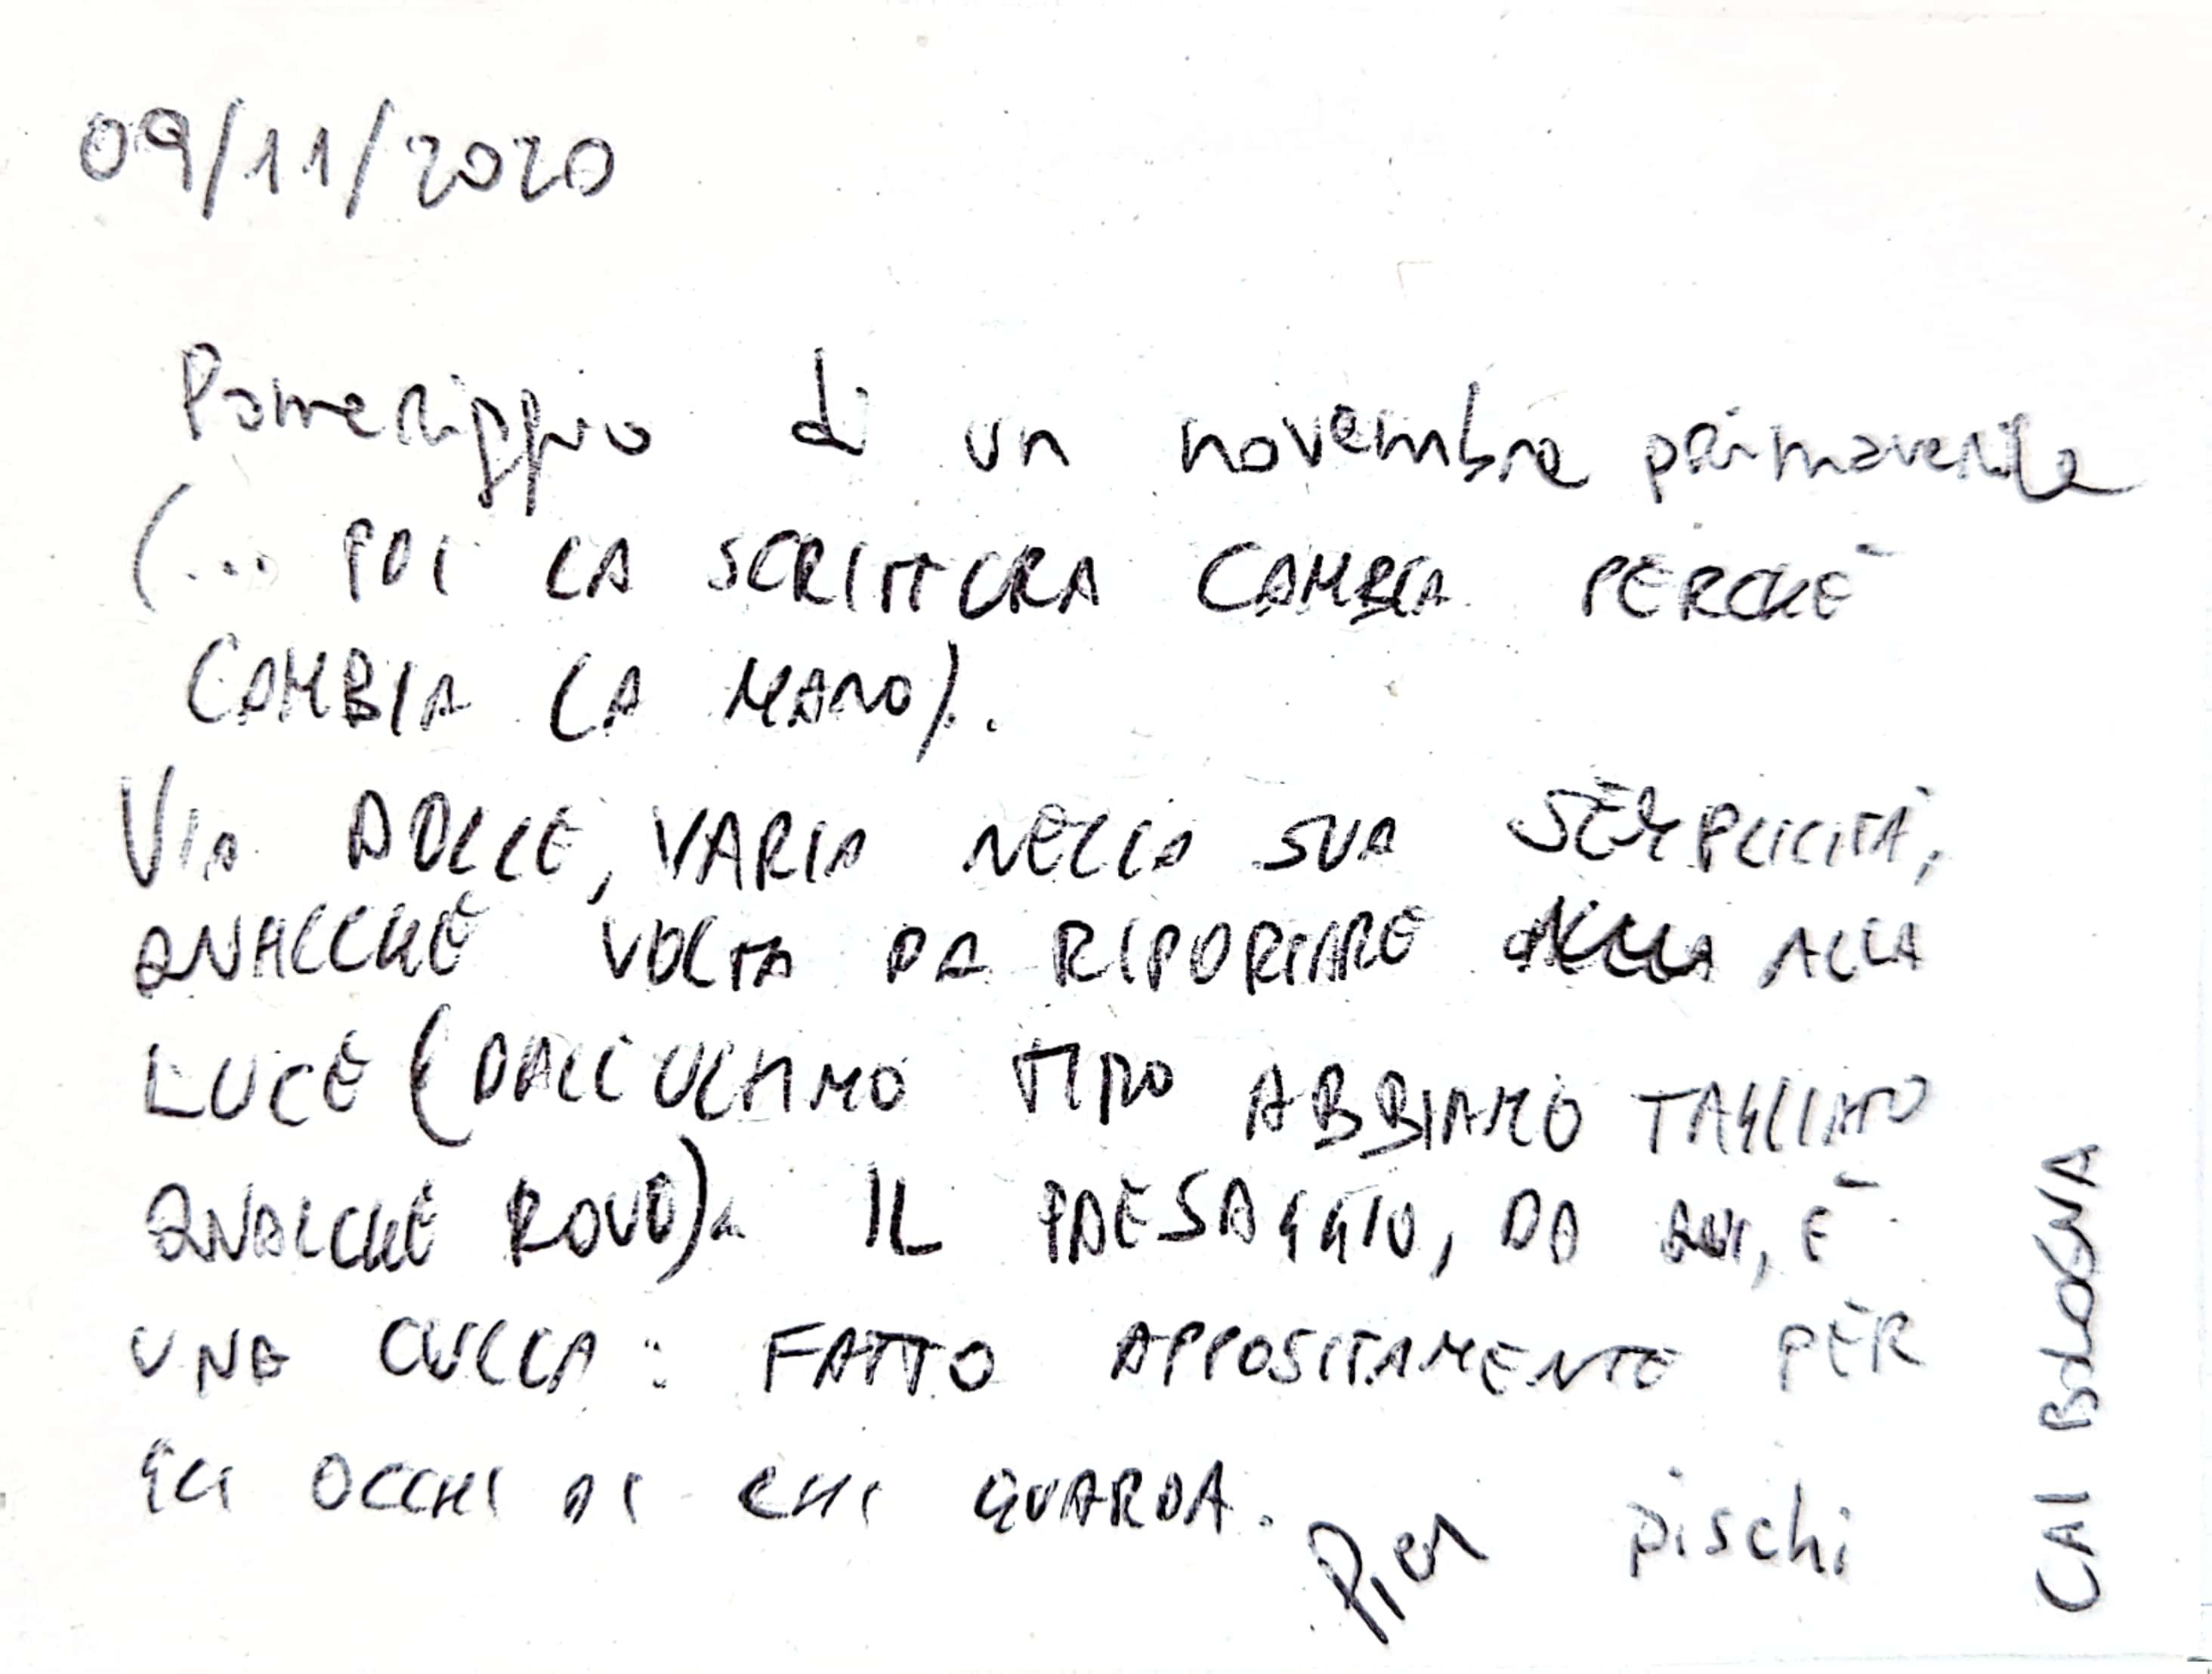 09/11/2020
Pomeriggio di un novembre primaverile
(... POI LA SCRITTURA CAMBIA PERCHÉ
CAMBIA LA MANO).
VIA DOLCE, VARIA NELLA SUA SEMPLICITÀ,
QUALCHE VOLTA DA RIPORTARE ALLA
LUCE (DALL'ULTIMO TIRO ABBIAMO TAGLIATO
QUALCHE ROVO). IL PAESAGGIO, DA QUI, È
UNA CULLA: FATTO APPOSITAMENTE PER
GLI OCCHI DI CHI GUARDA.
Pier pischi
CAI BOLOGNA